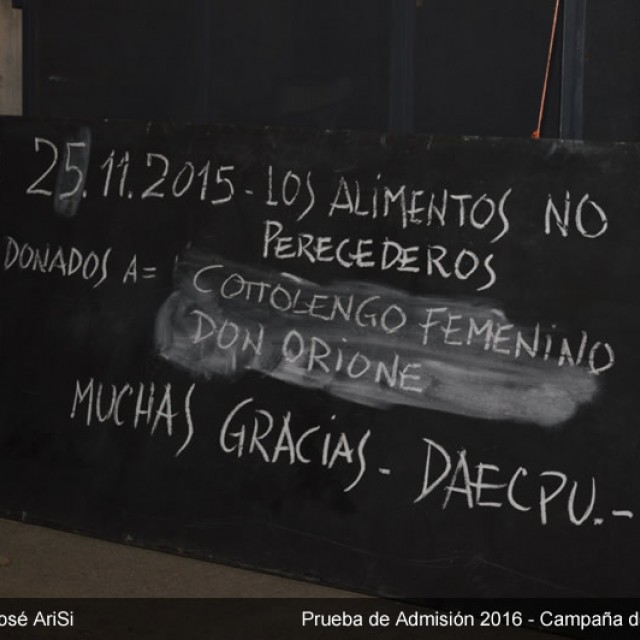 25.11.2015 - LOS ALiMENTOS NO
PERECEDEROS
DONADOS A=
COTTOLENGO FEMENiNO
DON ORIONE
MUCHAS GRACiAS - DAECPU.-
osé AriSi
Prueba de Admisión 2016 - Campaña d